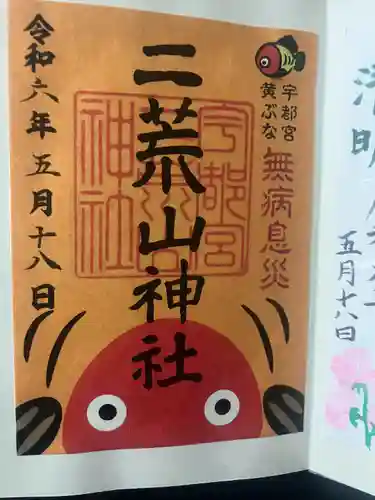 宇都宮
黄ぶな
無病息災
二荒山神社
宇都宮
二荒山
神社
令和六年五月十八日
五月十八日